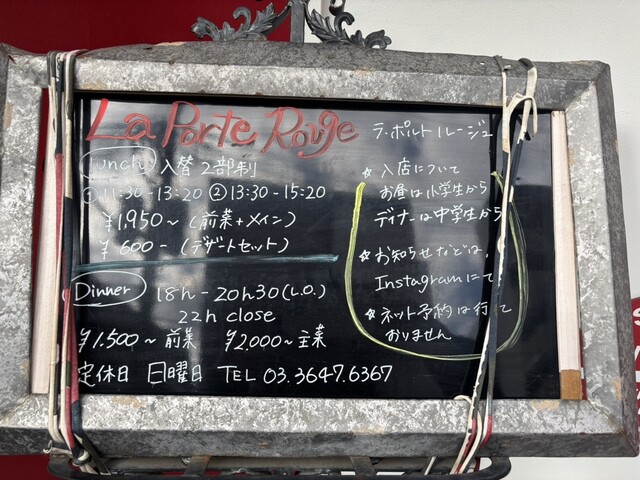 La Porte Rouge ラ・ポルト ルージュ
Lunch 入替 2部制
① 11:30-13:20 ② 13:30-15:20
¥1,950~ (前菜+メイン)
¥ 600- (デザートセット)
Dinner 18h-20h30(L.O.)
22h close
¥1,500~前菜 ¥2,000~主菜
定休日 日曜日 TEL 03.3647.6367
☆ 入店について
お昼は小学生から
ディナーは中学生から
☆ お知らせなどは、
Instagramにて
☆ ネット予約は行って
おりません